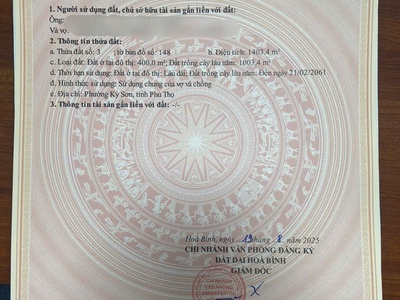 1. Người sử dụng đất, chủ sở hữu tài sản gắn liền với đất:
Ông:
Và vợ.
2. Thông tin thửa đất:
a. Thửa đất số: 3 ; tờ bản đồ số: 148 b. Diện tích: 1403,4 m²
c. Loại đất: Đất ở tại đô thị: 400,0 m²; Đất trồng cây lâu năm: 1003,4 m²
d. Thời hạn sử dụng: Đất ở tại đô thị: Lâu dài; Đất trồng cây lâu năm: Đến ngày 21/02/2061
đ. Hình thức sử dụng: Sử dụng chung của vợ và chồng
e. Địa chỉ: Phường Kỳ Sơn, tỉnh Phú Thọ
3. Thông tin tài sản gắn liền với đất: -/-
Hoà Bình, ngày 19 tháng 8 năm 2025
CHI NHÁNH VĂN PHÒNG ĐĂNG KÝ
ĐẤT ĐAI HOÀ BÌNH
GIÁM ĐỐC